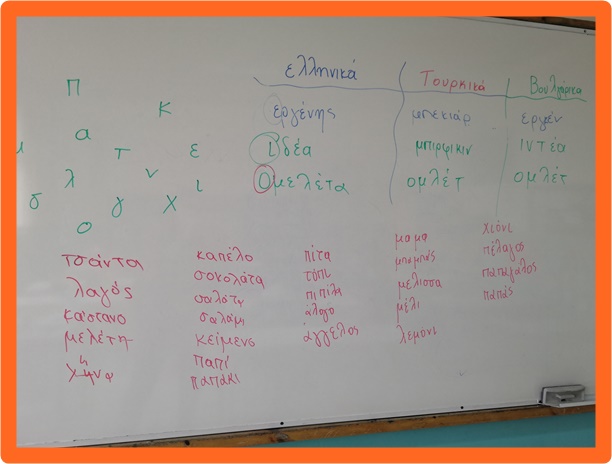 ελληνικά Τουρκικά Βουλγάρικα
εργένης μπεκιάρ εργέν
ιδέα μπιρφικιν ιντέα
ομελέτα ομλέτ ομλέτ
Π
Κ
α τ ε
λ ν ι
σ γ χ
ο
τσάντα
λαγός
κάστανο
μελέτη
χήνα
καπέλο
σοκολάτα
σαλάμι
κείμενο
παπί
παπάκι
πίτα
τόπι
πιπίλα
άλογο
άγγελος
μαμα
μπαμπάς
μελισσα
μέλι
λεμονι
χιόνι
πέλαγος
παπαγάλος
παπάς